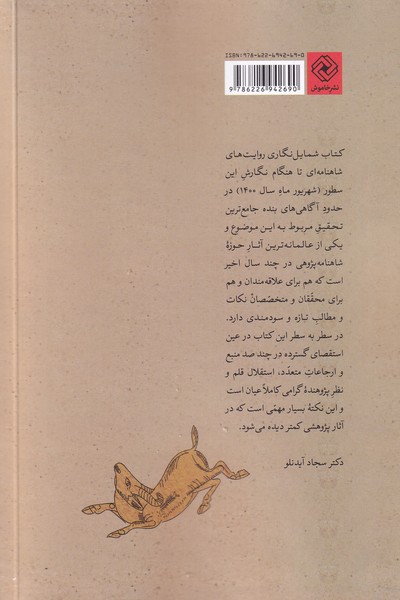 ISBN: ۹۷۸-۶۲۲-۶۹۴۲-۶۹-۰
9 786226 942690
نشر خاموش
کتاب شمایل‌نگاری روایت‌های
شاهنامه‌ای تا هنگام نگارشِ این
سطور (شهریور ماهِ سال ۱۴۰۰) در
حدودِ آگاهی‌های بنده جامع‌ترین
تحقیقِ مربوط به این موضوع و
یکی از عالمانه‌ترین آثارِ حوزۀ
شاهنامه‌پژوهی در چند سال اخیر
است که هم برای علاقه‌مندان و هم
برای محقّقان و متخصصانْ نکات
و مطالبِ تازه و سودمندی دارد.
در سطر به سطر این کتاب در عین
استقصای گسترده در چند صد منبع
و ارجاعاتِ متعدّد، استقلال قلم و
نظرِ پژوهندۀ گرامی کاملاً عیان است
و این نکتۀ بسیار مهمّی است که در
آثار پژوهشی کمتر دیده می‌شود.
دکتر سجاد آیدنلو